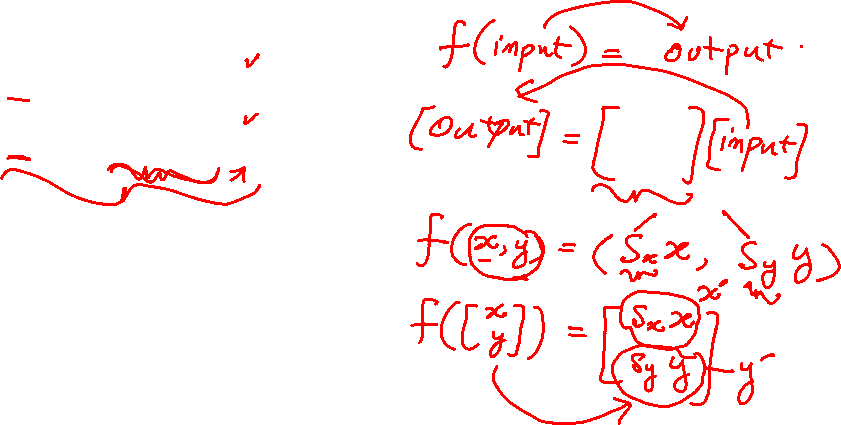 f(input) = output.
[output] = [ ] [input]
f(x, y) = (Sₓ x, S_y y)
f([x y]) = [Sₓ x x'
S_y y] y'